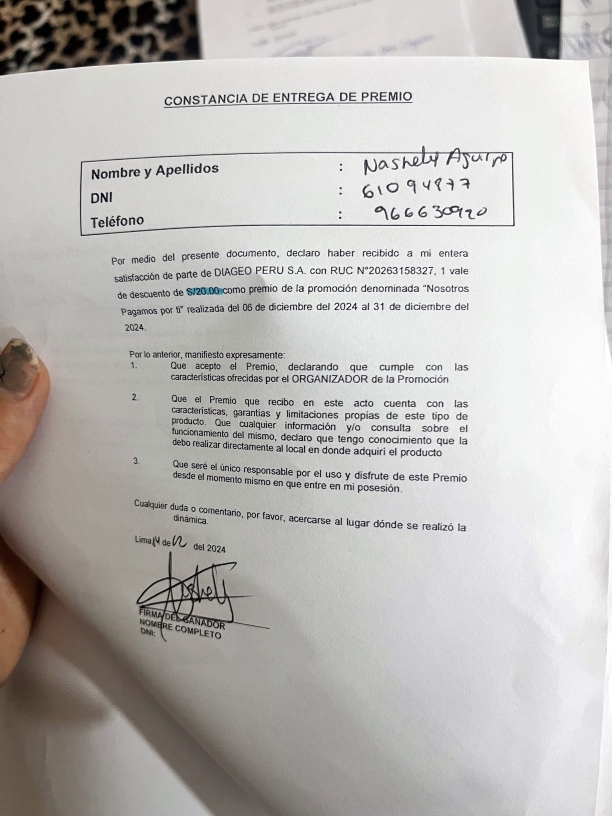 CONSTANCIA DE ENTREGA DE PREMIO
Nombre y Apellidos : Nashely Aguirre
DNI : 61094877
Teléfono : 966630920
Por medio del presente documento, declaro haber recibido a mi entera
satisfacción de parte de DIAGEO PERU S.A. con RUC N°20263158327, 1 vale
de descuento de S/20.00 como premio de la promoción denominada "Nosotros
Pagamos por ti" realizada del 06 de diciembre del 2024 al 31 de diciembre del
2024.
Por lo anterior, manifiesto expresamente:
1. Que acepto el Premio, declarando que cumple con las
características ofrecidas por el ORGANIZADOR de la Promoción
2. Que el Premio que recibo en este acto cuenta con las
características, garantías y limitaciones propias de este tipo de
producto. Que cualquier información y/o consulta sobre el
funcionamiento del mismo, declaro que tengo conocimiento que la
debo realizar directamente al local en donde adquirí el producto
3. Que seré el único responsable por el uso y disfrute de este Premio
desde el momento mismo en que entre en mi posesión.
Cualquier duda o comentario, por favor, acercarse al lugar dónde se realizó la
dinámica.
Lima 14 de 12 del 2024
Nashely
FIRMA DEL GANADOR
NOMBRE COMPLETO
DNI: